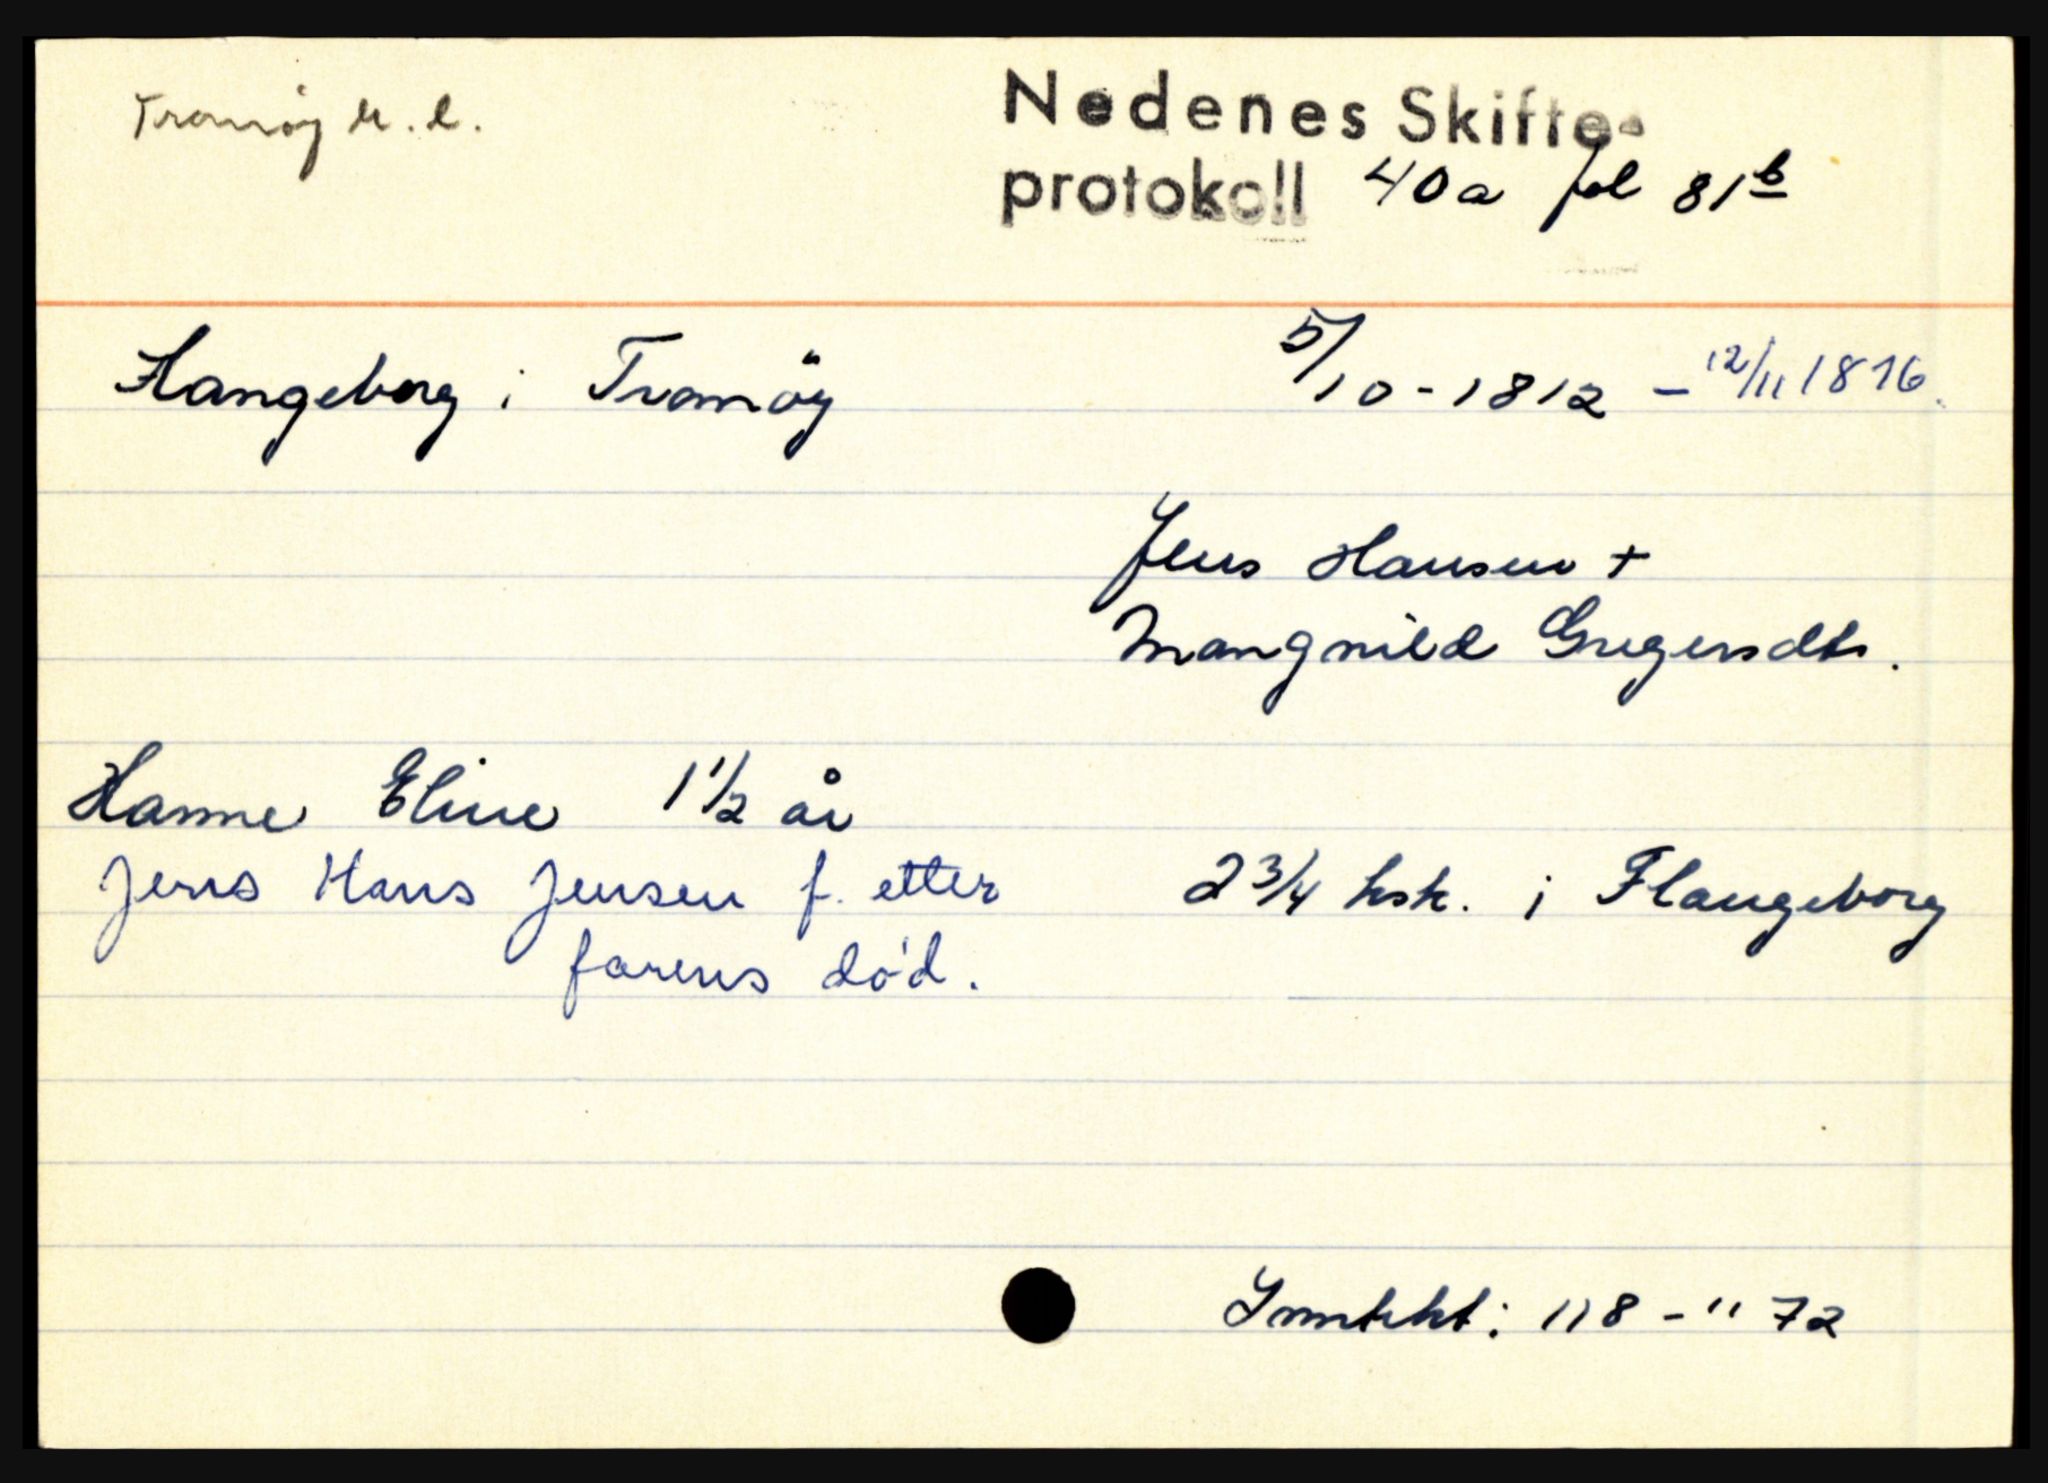 Tromøy M.l.
Nedenes Skifte-
protokoll 40a fol 81b
Hangeborg i Tromöy 5/10-1812 - 12/11 1816.
Jens Hansen +
Mangnild Gregersdts.
Hanne Eline 1 1/2 år
Jens Hans Jensen f. etter
farens død.
2 3/4 ksk. i Flangeborg
Inntekt: 118 - " 72